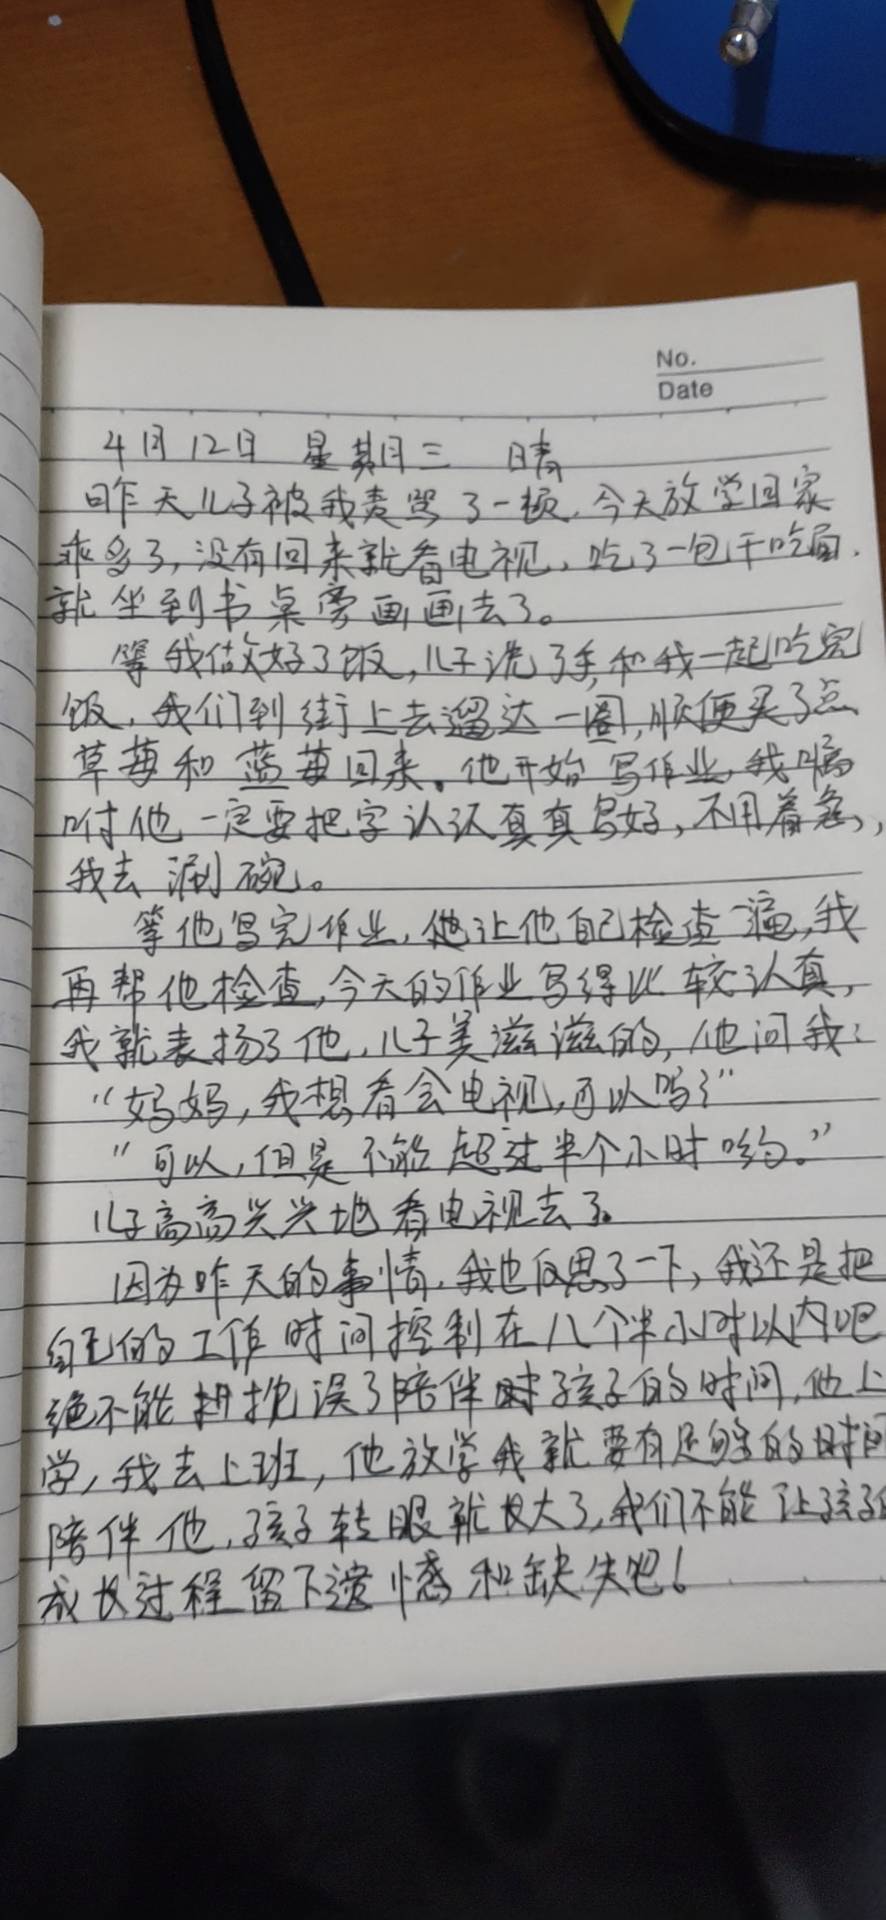 No.
Date
4月12日 星期三 晴
昨天儿子被我责骂了一顿,今天放学回家
乖多了,没有回来就看电视,吃了一包干吃面,
就坐到书桌旁画画去了。
等我做好了饭,儿子洗了手,和我一起吃完
饭,我们到街上去遛达一圈,顺便买了点
草莓和蓝莓回来。他开始写作业,我嘱
咐他一定要把字认认真真写好,不用着急,
我去涮碗。
等他写完作业,他让他自己检查一遍,我
再帮他检查,今天的作业写得比较认真,
我就表扬了他,儿子美滋滋的,他问我:
“妈妈,我想看会电视,可以吗?”
“可以,但是不能超过半个小时哟。”
儿子高高兴兴地看电视去了。
因为昨天的事情,我也反思了一下,我还是把
自己的工作时间控制在八个半小时以内吧
绝不能耽误了陪伴孩子的时间,他上
学,我去上班,他放学我就要有足够的时间
陪伴他,孩子转眼就长大了,我们不能让孩子的
成长过程留下遗憾和缺失吧!